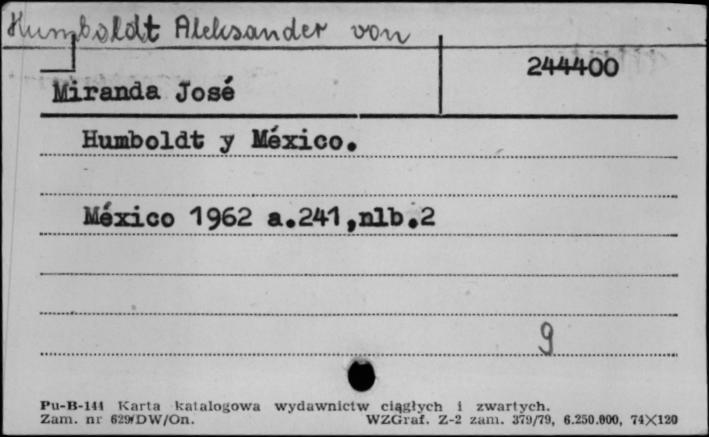 Humboldt Aleksander von
244400
Miranda José
Humboldt y México.
México 1962 a.241,nlb.2
9
Pu-B-144 Karta katalogowa wydawnictw ciągłych i zwartych.
Zam. nr 629/DW/On. WZGraf. Z-2 zam. 379/79, 6.250.000, 74X120